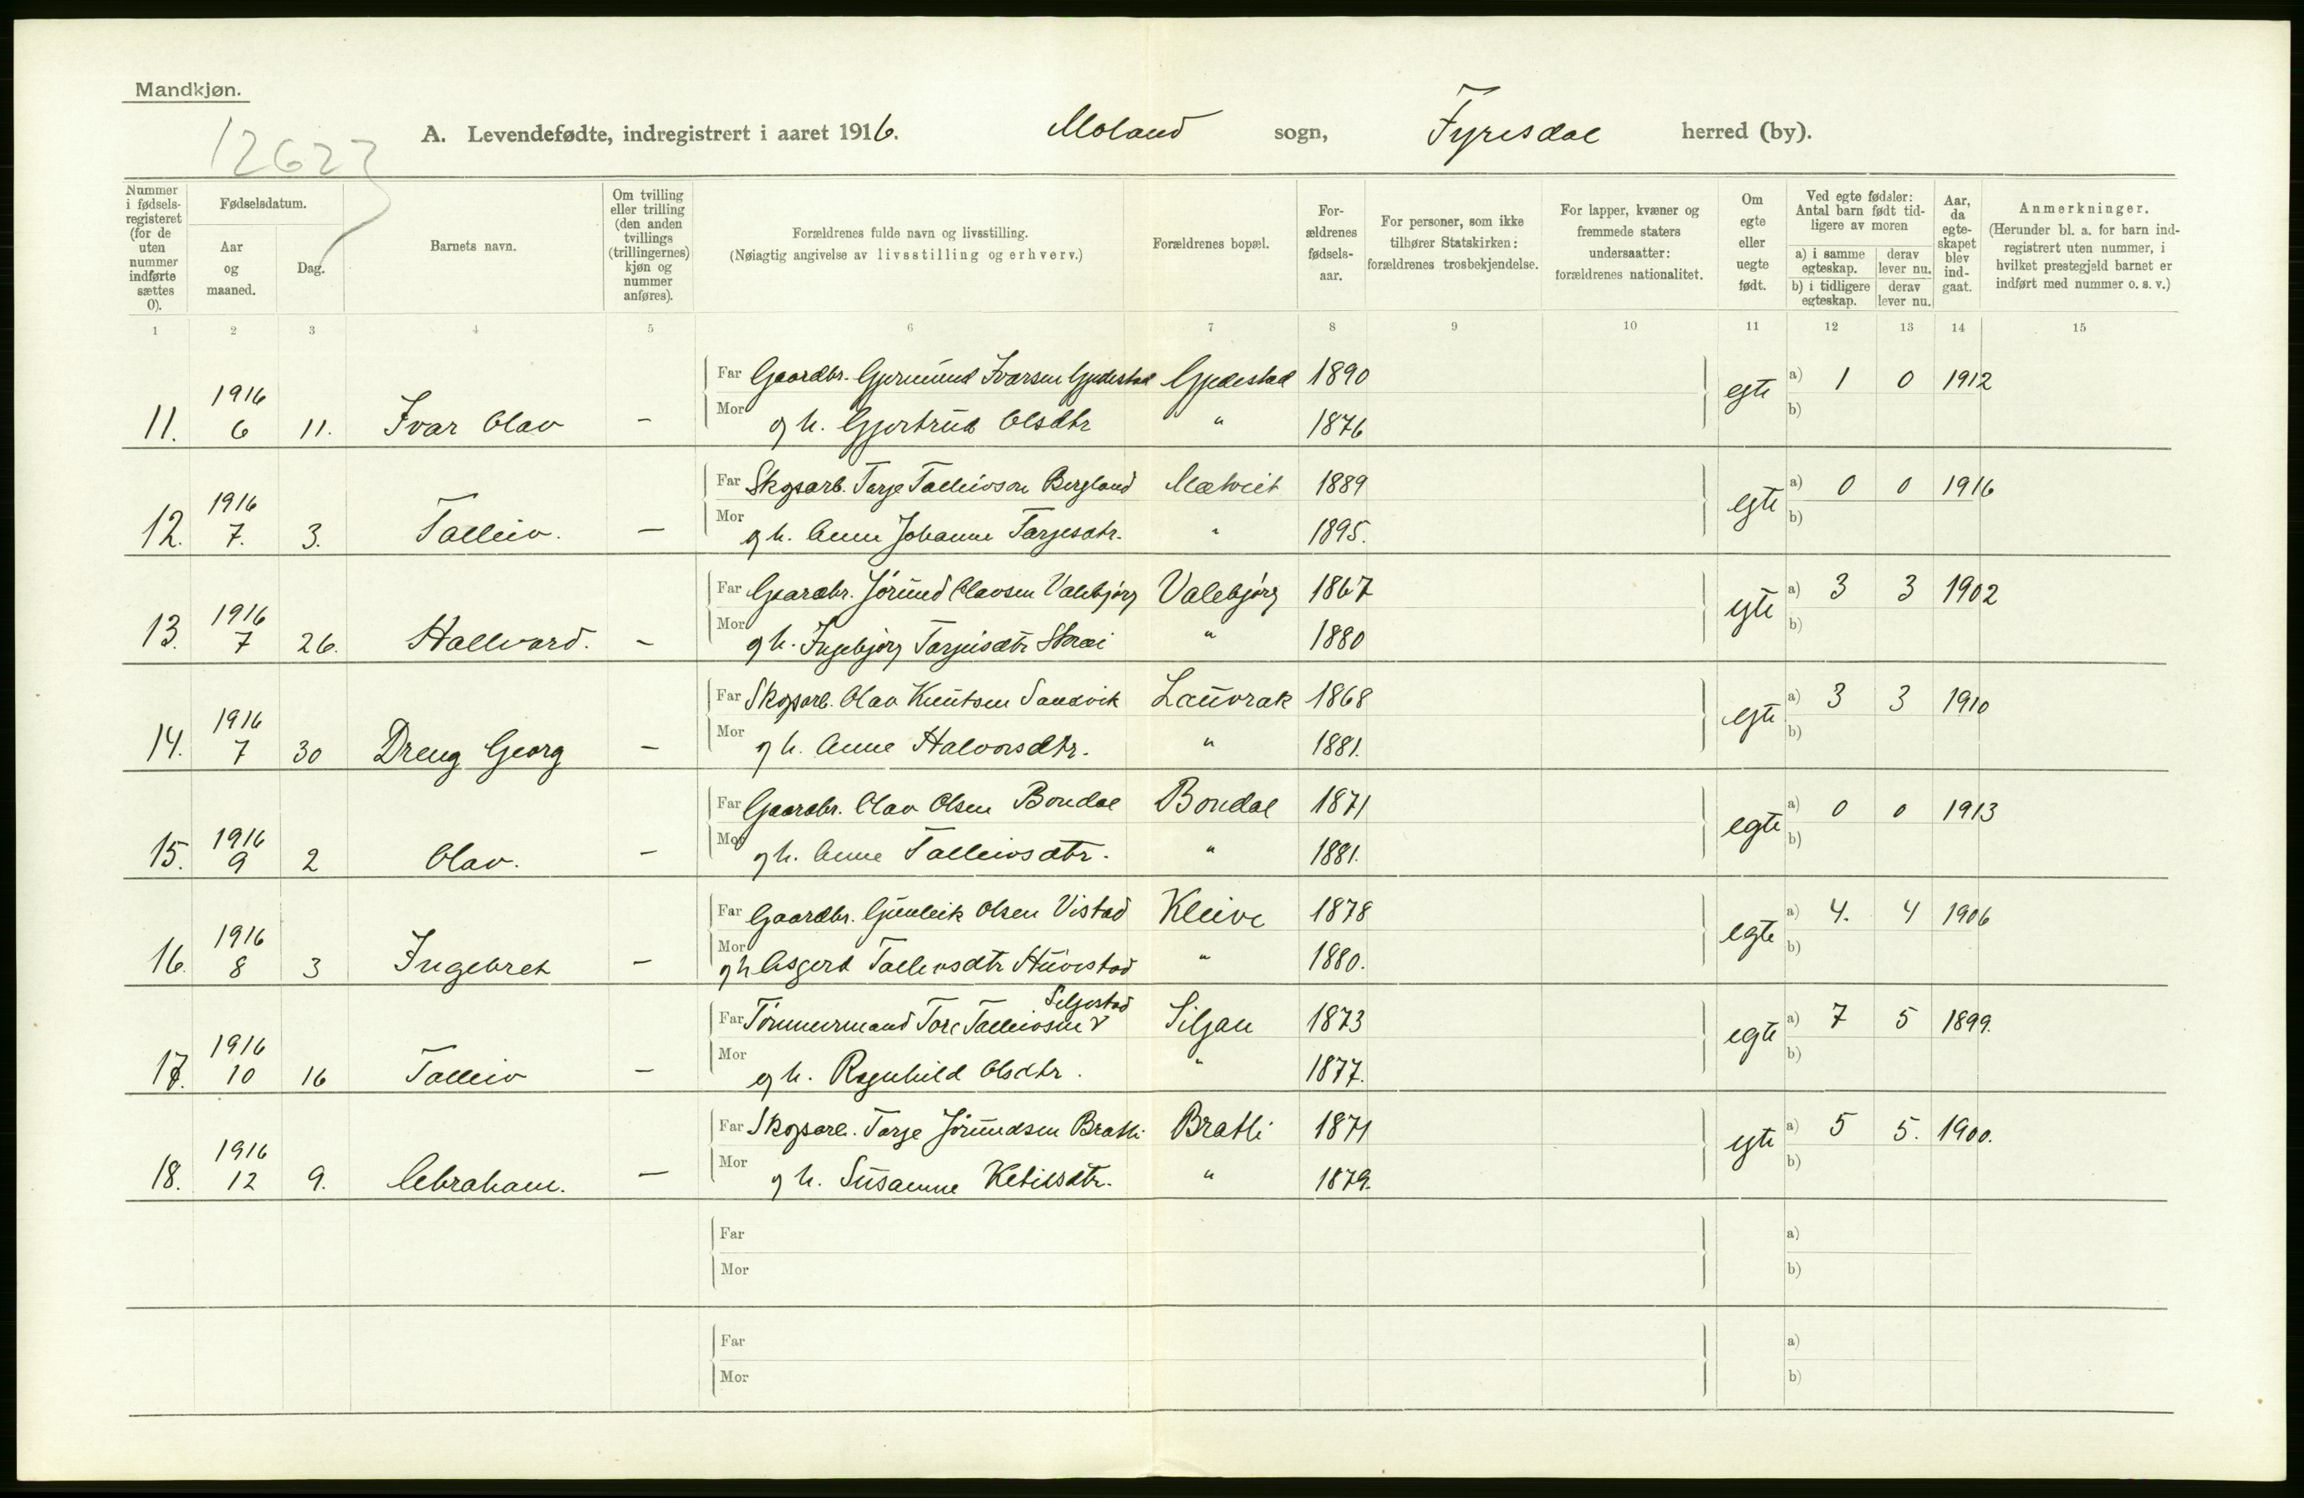 Mandkjøn.
12623
A. Levendefødte, indregistrert i aaret 1916. Moland sogn, Fyresdal herred (by).
Nummer i fødselsregisteret (for de uten nummer indførte sættes 0).
Fødselsdatum.
Aar og maaned.
Dag.
Barnets navn.
Om tvilling eller trilling (den anden tvillings (trillingernes) kjøn og nummer anføres).
Forældrenes fulde navn og livsstilling.
(Nøiagtig angivelse av livsstilling og erhverv.)
Forældrenes bopæl.
Forældrenes fødselsaar.
For personer, som ikke tilhører Statskirken: forældrenes trosbekjendelse.
For lapper, kvæner og fremmede staters undersaatter: forældrenes nationalitet.
Om egte eller uegte født.
Ved egte fødsler: Antal barn født tidligere av moren
a) i samme egteskap.
derav lever nu.
b) i tidligere egteskap.
derav lever nu.
Aar, da egteskapet blev indgaat.
Anmerkninger.
(Herunder bl. a. for barn indregistrert uten nummer, i hvilket prestegjeld barnet er indført med nummer o. s. v.)
1 2 3 4 5 6 7 8 9 10 11 12 13 14 15
Far Gaardbr. Gjermund Ivarsen Gjedestad Gjedestad 1890 egte a) 1 0 1912
11. 1916 6 11. Ivar Olav – Mor og h. Gjertrud Olsdtr " 1876 b)
Far Skogsarb. Tarje Talleivson Bergland Mætveit 1889 egte a) 0 0 1916
12. 1916 7. 3. Talleiv. – Mor og h. Anne Johanne Tarjesdtr. " 1895. b)
Far Gaardbr. Jørund Olavsen Valebjørg Valebjørg 1867 egte a) 3 3 1902
13. 1916 7 26. Hallvard. – Mor og h. Ingebjørg Tarjeisdtr " 1880 b)
Far Skogsarb. Olav Knutsen Sandvik Lauvrak 1868 egte a) 3 3 1910
14. 1916 7 30 Dreng Georg – Mor og h. Anne Halvorsdtr. " 1881. b)
Far Gaardbr. Olav Olsen Bondal Bondal 1871 egte a) 0 0 1913
15. 1916 9 2 Olav. – Mor og h. Anne Talleivsdtr. " 1881. b)
Far Gaardbr. Gunleik Olsen Vistad Kleive 1878 egte a) 4. 4 1906
16. 1916 8 3 Ingebret – Mor og h Asgert Talleivsdtr Huvestad " 1880. b)
Seljestad
Far Tømmermand Tore Talleivsen v Siljan 1873 egte a) 7 5 1899.
17. 1916 10 16 Talleiv – Mor og h. Ragnhild Olsdtr. " 1877. b)
Far Skogsarb. Tarje Jørundsen Bratli Bratli 1871 egte a) 5 5. 1900.
18. 1916 12 9. Abraham. – Mor og h. Susanne Ketilsdtr. " 1879. b)
Far a)
Mor b)
Far a)
Mor b)